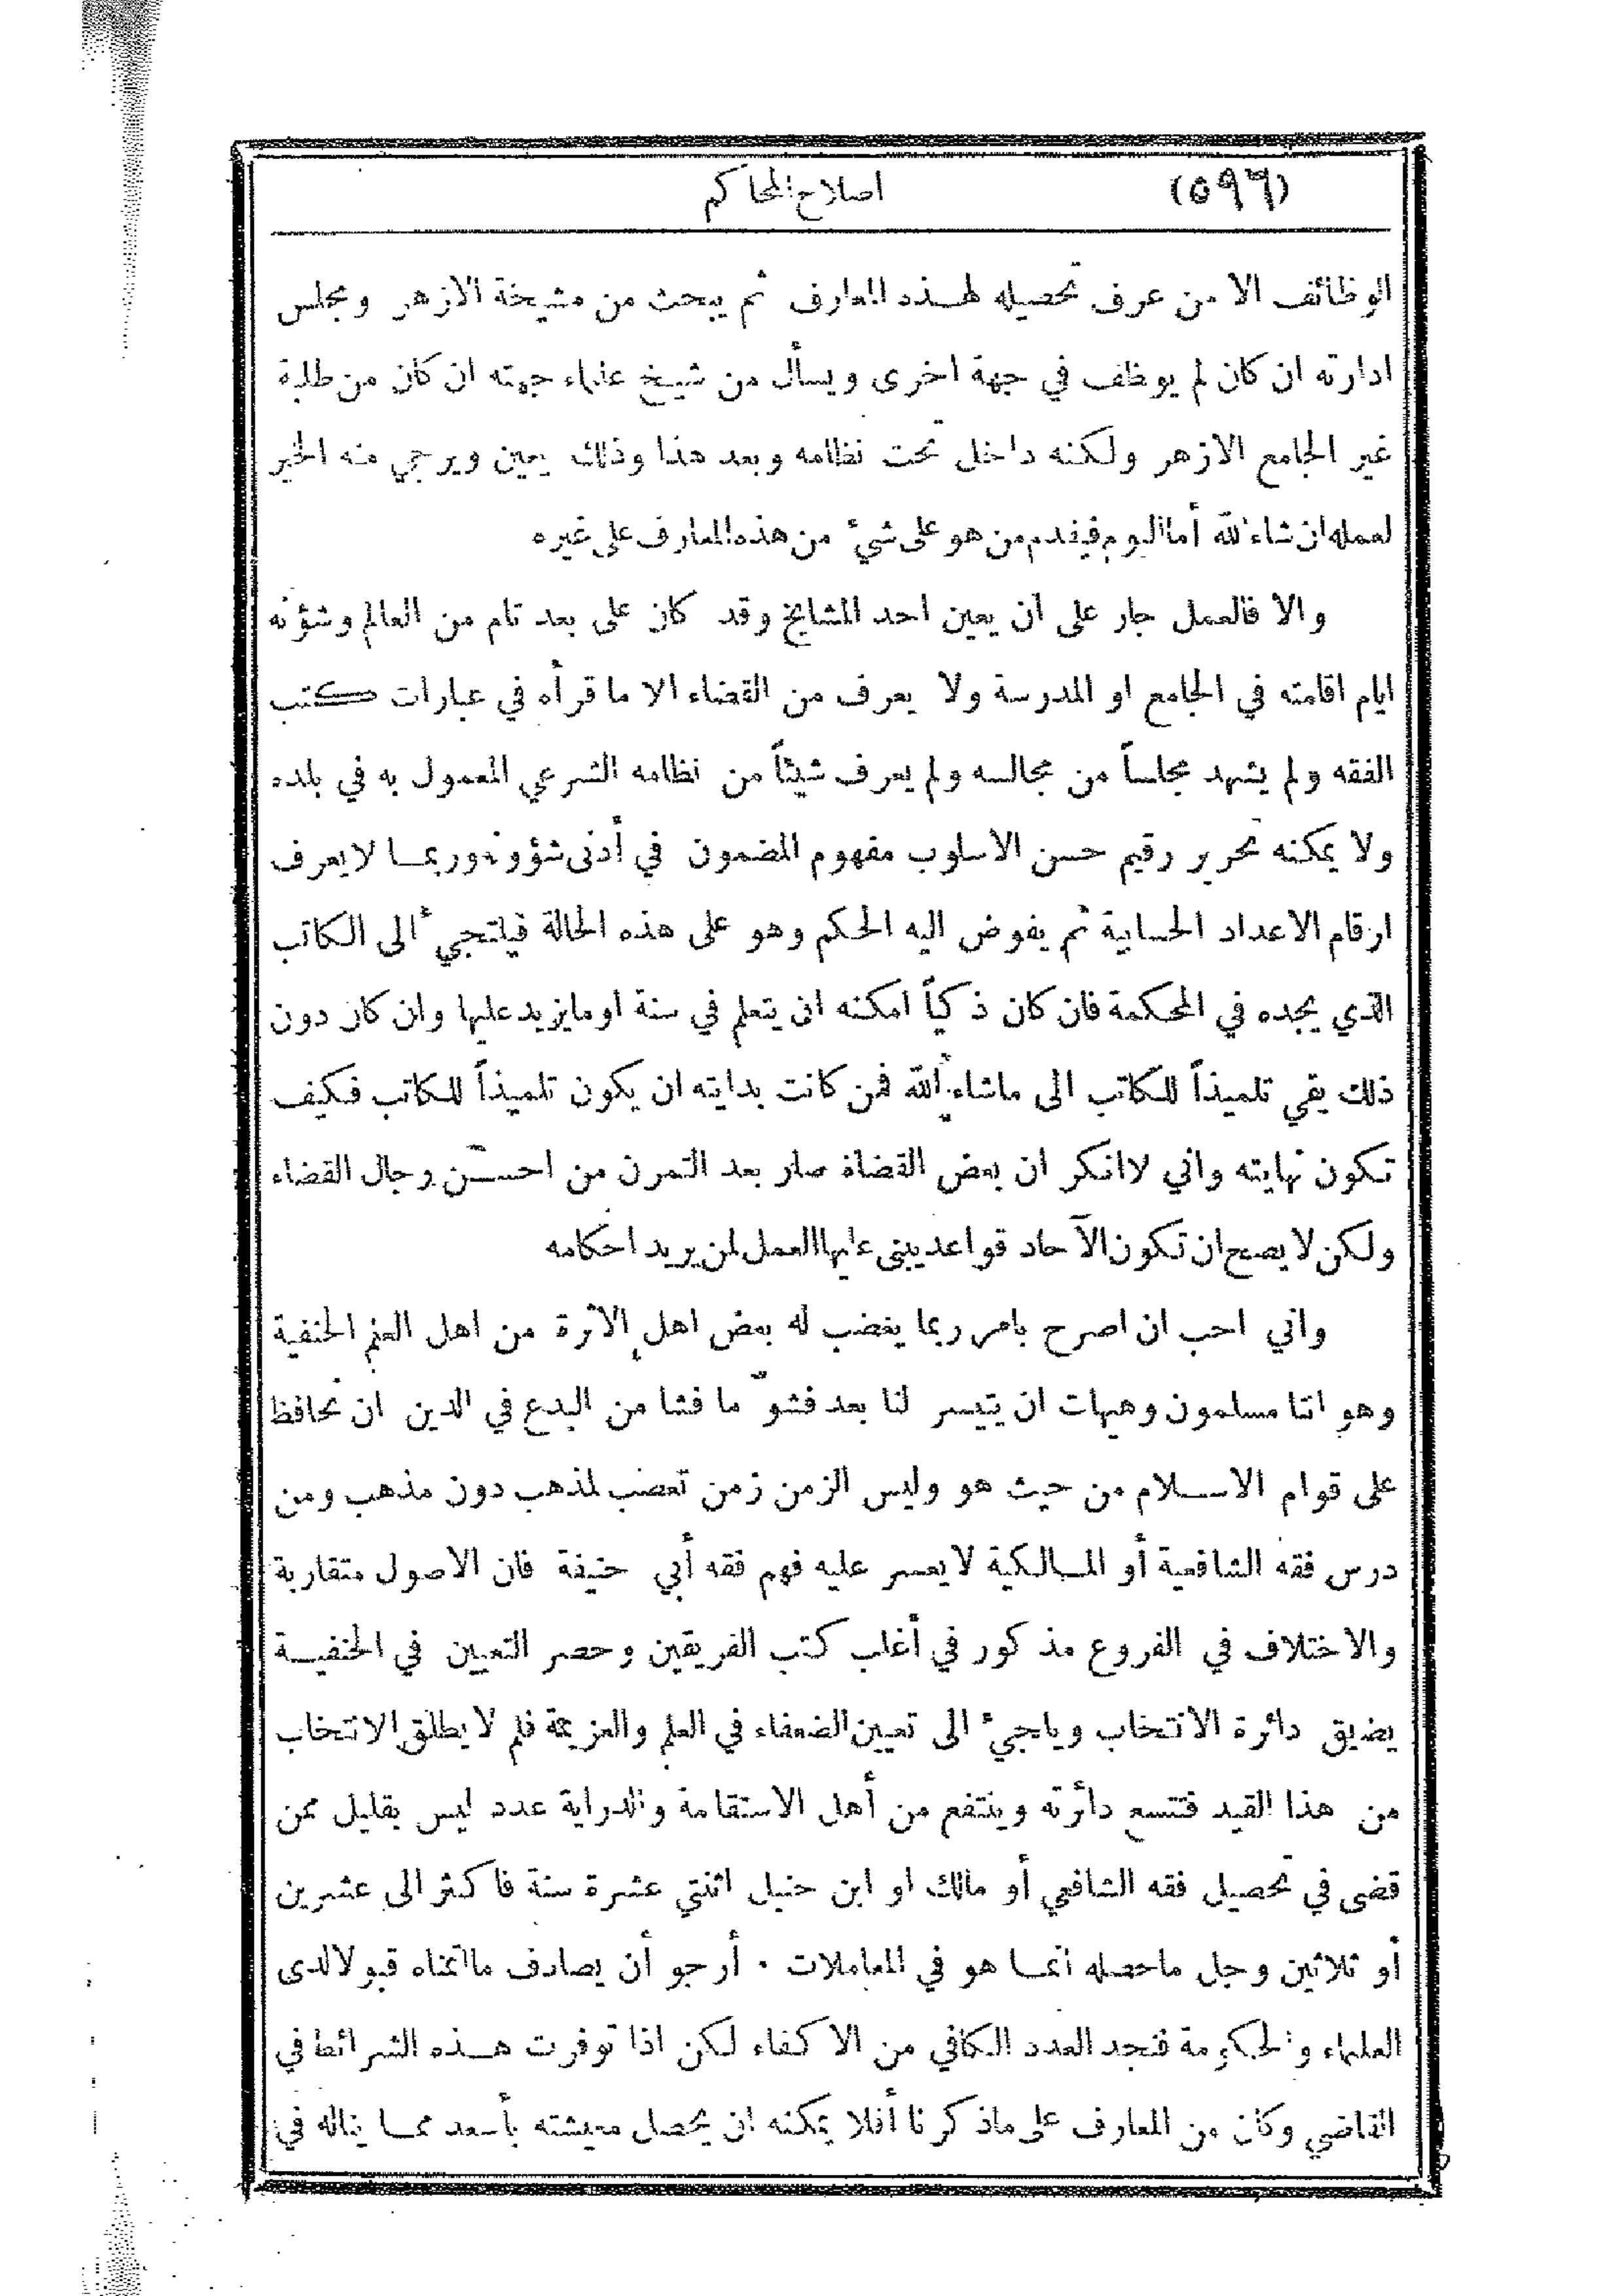 (٥٩٦) اصلاح المحاكم
الوظائف الا من عرف تحصيله لهذه المعارف ثم يبحث من مشيخة الازهر ومجلس
ادارته ان كان لم يوظف في جهة اخرى ويسأل من شيخ علماء جهته ان كان من طلبة
غير الجامع الازهر ولكنه داخل تحت نظامه وبعد هذا وذلك يعين ويرجي منه الخير
لعمله ان شاء الله أما اليوم فيقدم من هو على شيء من هذه المعارف على غيره
والا فالعمل جار على ان يعين احد المشايخ وقد كان على بعد تام من العالم وشؤنه
ايام اقامته في الجامع او المدرسة ولا يعرف من القضاء الا ما قرأه في عبارات كتب
الفقه ولم يشهد مجلساً من مجالسه ولم يعرف شيئاً من نظامه الشرعي المعمول به في بلده
ولا يمكنه تحرير رقيم حسن الاسلوب مفهوم المضمون في أدنى شؤونه وربمـا لا يعرف
ارقام الاعداد الحسابية ثم يفوض اليه الحكم وهو على هذه الحالة فيلتجيء الى الكاتب
الذي يجده في المحكمة فان كان ذكياً امكنه ان يتعلم في سنة او ما يزيد عليها وان كان دون
ذلك بقي تلميذاً للكاتب الى ماشاء الله فمن كانت بدايته ان يكون تلميذاً للكاتب فكيف
تكون نهايته واني لا انكر ان بعض القضاة صار بعد التمرن من احسـن رجال القضاء
ولكن لا يصح ان تكون الآحاد قواعد يبنى عليها العمل لمن يريد احكامه
واني احب ان اصرح بامر ربما يغضب له بعض اهل الاثرة من اهل العلم الحنفية
وهو اننا مسلمون وهيهات ان يتيسر لنا بعد فشوّ ما فشا من البدع في الدين ان نحافظ
على قوام الاسـلام من حيث هو وليس الزمن زمن تعصب لمذهب دون مذهب ومن
درس فقه الشافعية أو المـالكية لا يعسر عليه فهم فقه أبي حنيفة فان الاصول متقاربة
والاختلاف في الفروع مذكور في أغلب كتب الفريقين وحصر التعيين في الحنفيـة
يضيق دائرة الانتخاب ويلجيء الى تعيين الضعفاء في العلم والعزيمة فلم لا يطلق الانتخاب
من هذا القيد فتتسع دائرته وينتفع من أهل الاستقامة والدراية عدد ليس بقليل ممن
قضى في تحصيل فقه الشافعي أو مالك او ابن حنبل اثنتي عشرة سنة فاكثر الى عشرين
أو ثلاثين وجل ماحصله انمـا هو في المعاملات . أرجو أن يصادف ما اتمناه قبولا لدى
العلماء والحكومة فنجد العدد الكافي من الاكفاء لكن اذا توفرت هـذه الشرائط في
القاضي وكان من المعارف على ماذكرنا أفلا يمكنه ان يحصل معيشته بأسعد ممـا يناله في